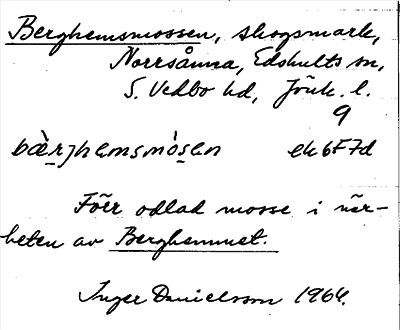 Berghemsmossen, skogsmark,
Norrsånna, Edshults sn,
S. Vedbo hd, Jönk. l.
9
bæ̀rjhemsmòsen ek 6F7d
Förr odlad mosse i när-
heten av Berghemmet.
Inger Danielsson 1964.